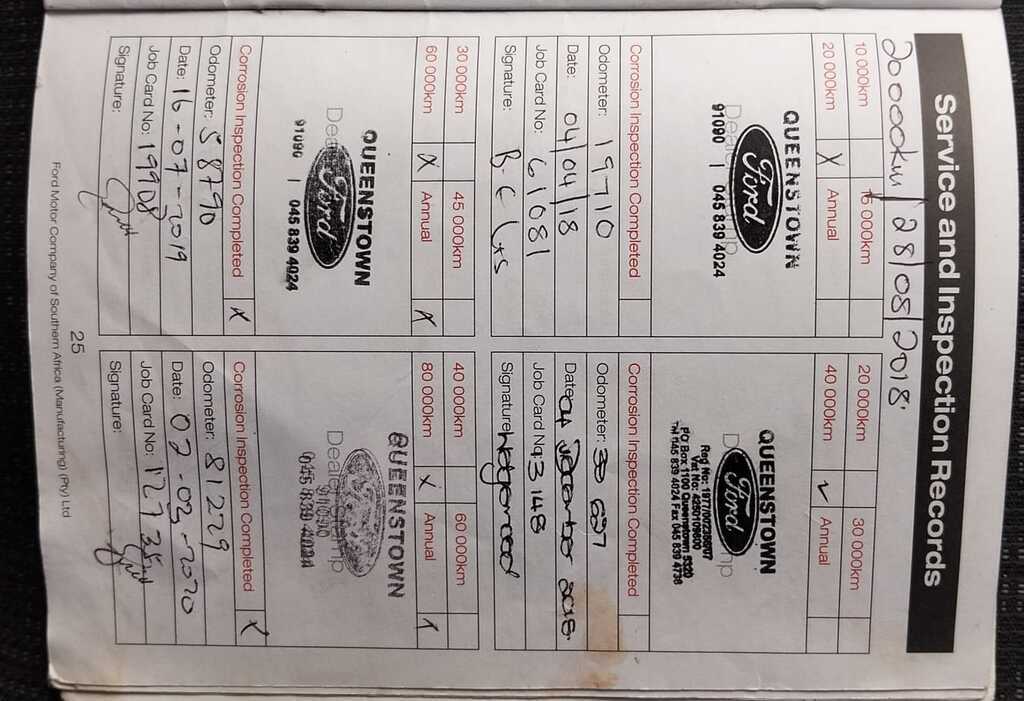 Service and Inspection Records
20000km / 28/08/2018.
10 000km 15 000km
20 000km X Annual
QUEENSTOWN
Ford
91090 | 045 839 4024
Corrosion Inspection Completed
Odometer: 19710
Date: 04/04/18
Job Card No: 61081
Signature:
20 000km 30 000km
40 000km ✓ Annual
QUEENSTOWN
Ford
Reg No: 1977/002288/07
Vat No: 4280109600
P/O Box 1100 Queenstown 5320
Tel 045 839 4024 Fax 045 839 4736
Corrosion Inspection Completed
Odometer: 39 697
Date: 04 December 2018.
Job Card No: 3148
Signature:
30 000km 45 000km
60 000km X Annual X
QUEENSTOWN
Ford
91090 | 045 839 4024
Corrosion Inspection Completed X
Odometer: 58790
Date: 16-07-2019
Job Card No: 19908
Signature:
40 000km 60 000km
80 000km X Annual X
QUEENSTOWN
91090
045 839 4024
Corrosion Inspection Completed X
Odometer: 81229
Date: 02-03-2020
Job Card No: 12735
Signature:
25
Ford Motor Company of Southern Africa (Manufacturing) (Pty) Ltd